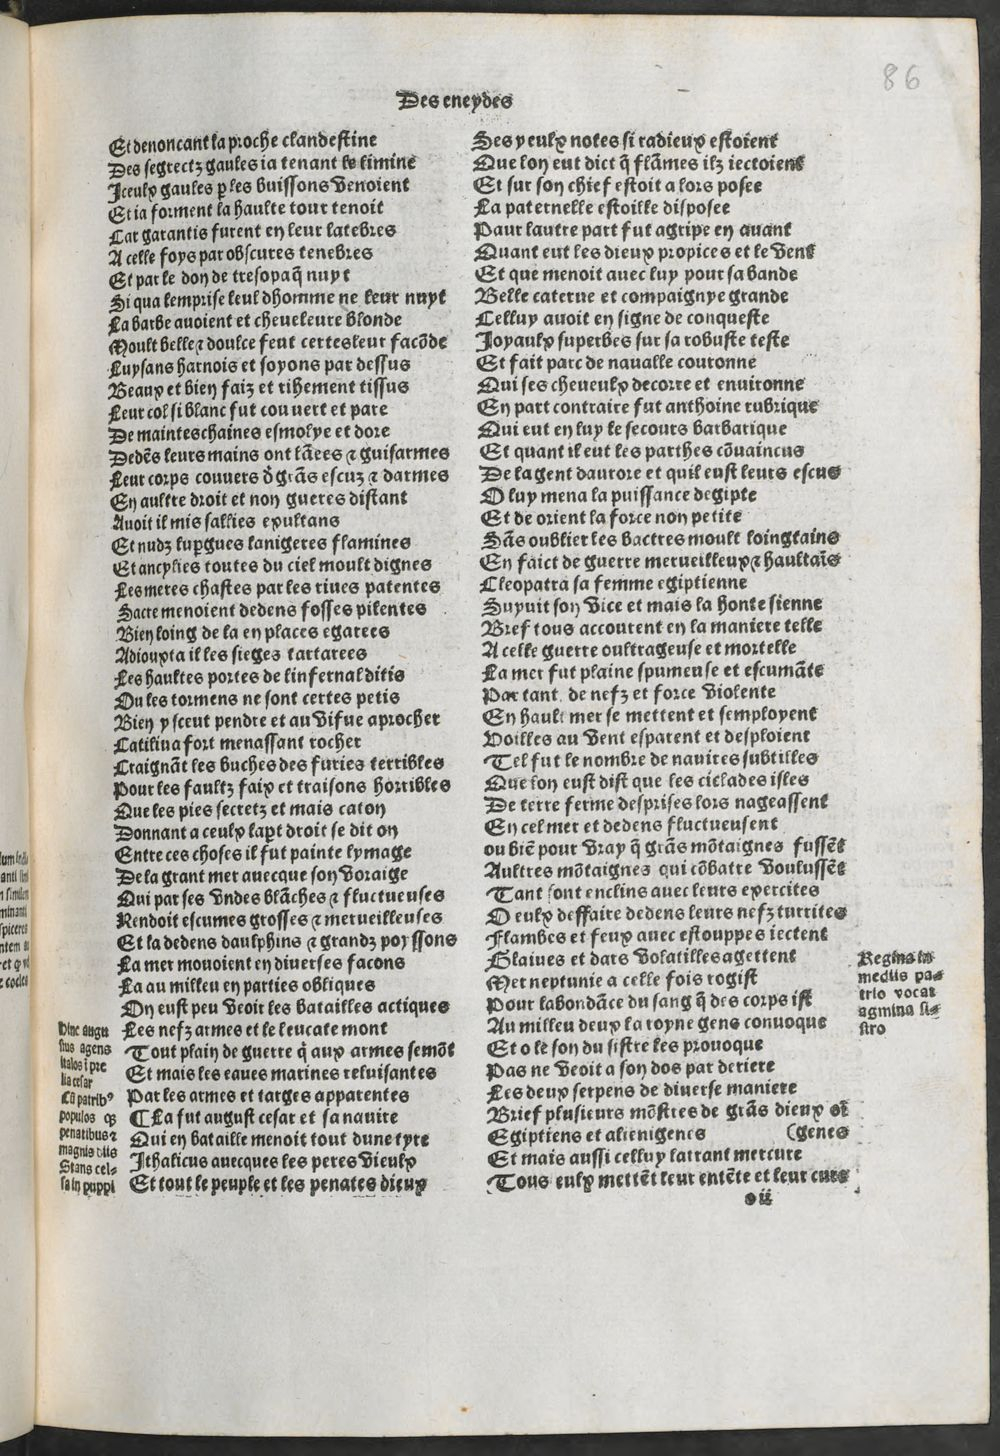 86
Des eneydes
Et denoncant la proche clandestine
Des segrectz gaules ia tenant le limine
Iceulx gaules p les buissons venoient
Et ia forment la haulte tour tenoit
Car garantis furent en leur latebres
A celle foys par obscures tenebres
Et par le don de tresopaq̃ nuyt
Si qua lemprise leul dhomme ne leur nuyt
La barbe avoient et cheueleure blonde
Moult belle ⁊ doulce feut certes leur facõde
Luysans harnois et soyons par dessus
Beaux et bien faiz et rihement tissus
Leur col si blanc fut couuert et pare
De mainteschaines esmolye et dore
Dedẽs leurs mains ont lãces ⁊ guisarmes
Leur corps couvers d̃ grãs escuz ⁊ darmes
En aultre droit et non gueres distant
Auoit il mis sallies exultans
Et nudz lupergues lanigeres flamines
Et ancylies toutes du ciel moult dignes
Les meres chastes par les riues patentes
Sacre menoient dedens fosses pilentes
Bien loing de la en places egarees
Adiouxta il les sieges tartarees
Les haultes portes de linfernal ditis
Ou les tormens ne sont certes petis
Bien y sceut pendre et au vifue aprocher
Catiliua fort menassant rocher
Craignãt les buches des furies terribles
Pour les faultz faix et traisons horribles
Que les pies secretz et mais caton
Donnant a ceulx lapert droit se dit on
Entre ces choses il fut painte lymage
De la grant mer avecque son voraige
Qui par ses vndes blãches ⁊ fluctueuses
Rendoit escumes grosses ⁊ merueilleuses
Et la dedens daulphins ⁊ grandz poyssons
La mer mouoient en diuerses facons
La au milleu en parties obliques
On eust peu veoir les batailles actiques
Les nefz armes et le leucate mont
Tout plain de guerre q̃ aux armes semõt
Et mais les eaues marines reluisantes
Par les armes et targes apparentes
¶ La fut august cesar et sa nauire
Qui en bataille menoit tout dune tyre
Ithalicus auecques les peres vieulx
Et tout le peuple et les penates dieux
Hinc augu
stus agens
italos ĩ pre
lia cesar
Cũ patribꝰ
populos qꝫ
penatibus ⁊
magnis diis
Stans cel-
sa in puppi
Ses yeulx notes si radieux estoient
Que lon eut dict q̃ flãmes ilz iectoient
Et sur son chief estoit a lors posee
La paternelle estoille disposee
Paur lautre part fut agripe en auant
Quant eut les dieux propices et le vent
Et que menoit auec luy pour sa bande
Belle caterue et compaignye grande
Celluy auoit en signe de conqueste
Ioyaulx superbes sur sa robuste teste
Et fait parc de naualle couronne
Qui ses cheueulx decorre et enuironne
En part contraire fut anthoine rubrique
Qui eut en luy le secours barbarique
Et quant il eut les parthes cõuaincus
De la gent daurore et quil eust leurs escus
O luy mena la puissance degipte
Et de orient la force non petite
Sãs oublier les bactres moult loingtains
En faict de guerre merueilleux ⁊ haultaĩs
Cleopatra sa femme egiptienne
Suyuit son vice et mais la honte sienne
Bref tous accourent en la maniere telle
A celle guerre oultrageuse et mortelle
La mer fut plaine spumeuse et escumãte
Par tant de nefz et force violente
En hault mer se mettent et semployent
Voilles au vent esparent et desploient
Tel fut le nombre de nauires subtilles
Que lon eust dist que les ciclades isles
De terre ferme desprises lors nageassent
En cel mer et dedens fluctueusent
ou biẽ pour vray q̃ grãs mõtaignes fussẽt
Aultres mõtaignes qui cõbatre voulussẽt
Tant sont enclins auec leurs exercites
O eulx deffaire dedens leurs nefz turrites
Flambes et feux auec estouppes iectent
Glaiues et dars volatilles agettent
Mer neptunie a celle fois rogist
Pour labondãce du sang q̃ des corps ist
Au milleu deux la royne gens conuoque
Et o le son du sistre les prouoque
Pas ne veoit a son dos par deriere
Les deux serpens de diuerse maniere
Brief plusieurs mõstres de grãs dieux oĩ
Egiptiens et alienigenes (genes
Et mais aussi celluy latrant mercure
Tous eulx mettẽt leur entẽte et leur cure
Regina in
mediis pa-
trio vocat
agmina si-
stro
o ii